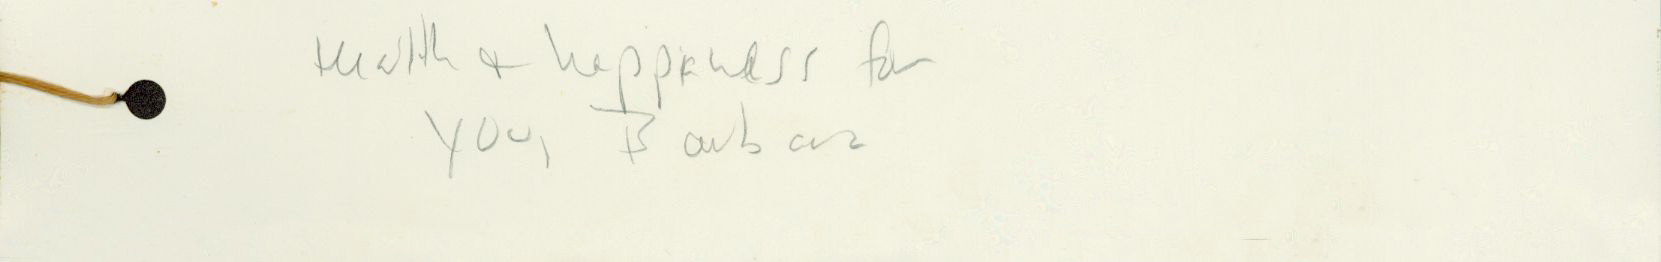 Health & happiness for
you, Barbara